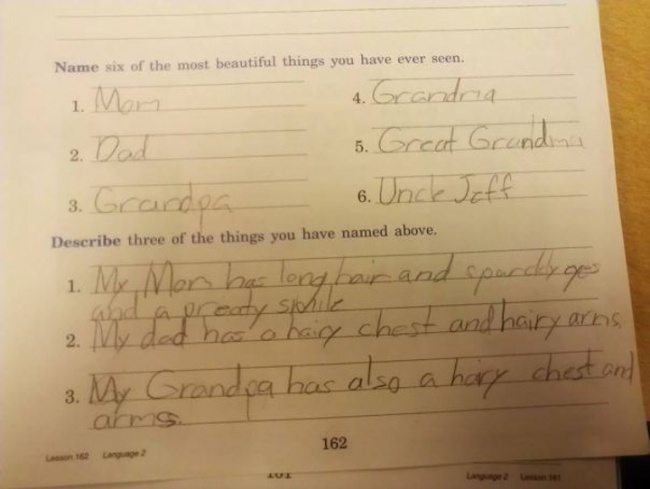 Name six of the most beautiful things you have ever seen.
1. Mom
2. Dad
3. Grandpa
4. Grandma
5. Great Grandma
6. Uncle Jeff
Describe three of the things you have named above.
1. My Mom has long hair and
and a preaty smile
2. My dad has a hairy chest and hairy arms
3. My Grandpa has also a hairy chest and
arms.
Lesson 162 Language 2
162
Language 2 Lesson 161